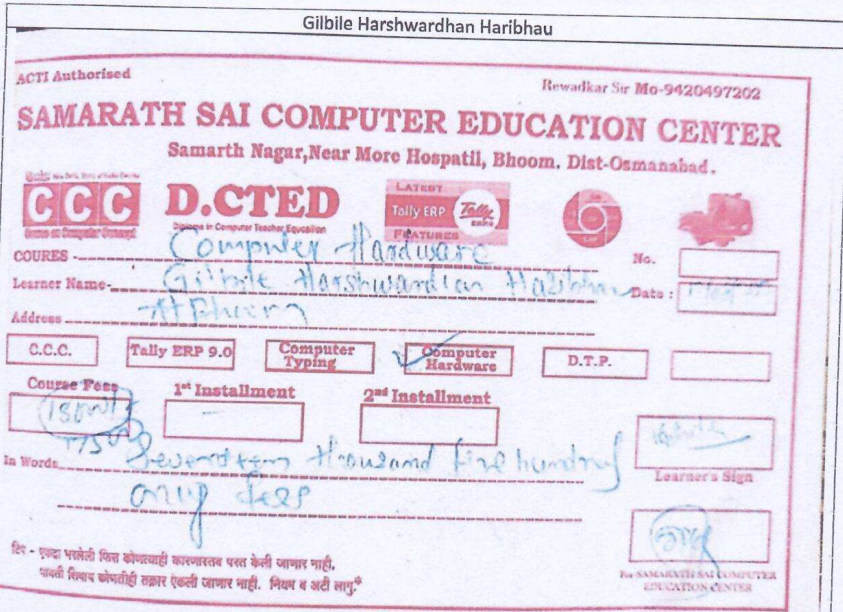 Gilbile Harshwardhan Haribhau
ACTI Authorised
Rewadkar Sir Mo-9420497202
SAMARATH SAI COMPUTER EDUCATION CENTER
Samarth Nagar,Near More Hospatil, Bhoom. Dist-Osmanabad.
CCC
Course on Computer Concept
D.CTED
Diploma in Computer Teacher Education
LATEST
Tally ERP Tally
FEATURES
COURES - Computer Hardware
No.
Learner Name- Gilbile Harshwardian Haribhau
Date :
Address At Bhoom
C.C.C.
Tally ERP 9.0
Computer Typing
Computer Hardware
D.T.P.
Course Fess
1st Installment
2nd Installment
17500
In Words Seventeen thousand five hundred
only fees
Learner's Sign
टिप - एकदा भरलेली फिस कोणत्याही कारणास्तव परत केली जाणार नाही.
पावती शिवाय कोणतीही तक्रार ऐकली जाणार नाही. नियम व अटी लागु.*
For SAMARATH SAI COMPUTER
EDUCATION CENTER